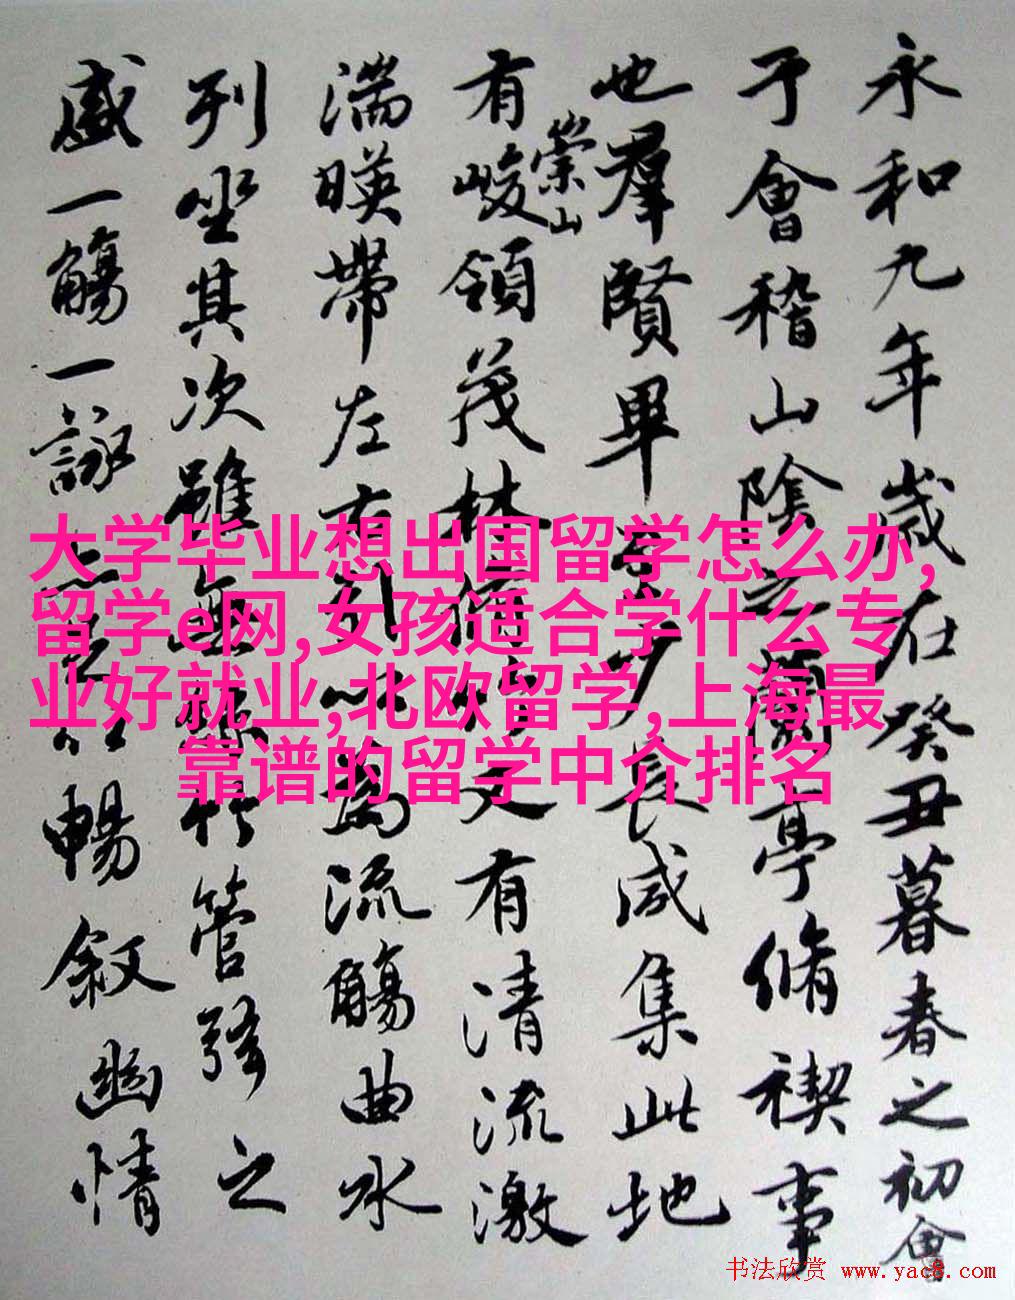 永和九年歲在癸丑暮春之初會
于會稽山陰之蘭亭脩禊事
也羣賢畢至少長咸集此地
有崇山峻領茂林脩竹又有清流激
湍暎帶左右引以為流觴曲水
列坐其次雖無絲竹管弦之
盛一觴一詠暢敘幽情
大学毕业想出国留学怎么办,
留学e网,女孩适合学什么专
业好就业,北欧留学,上海最
靠谱的留学中介排名
书法欣赏 www.yac8.com